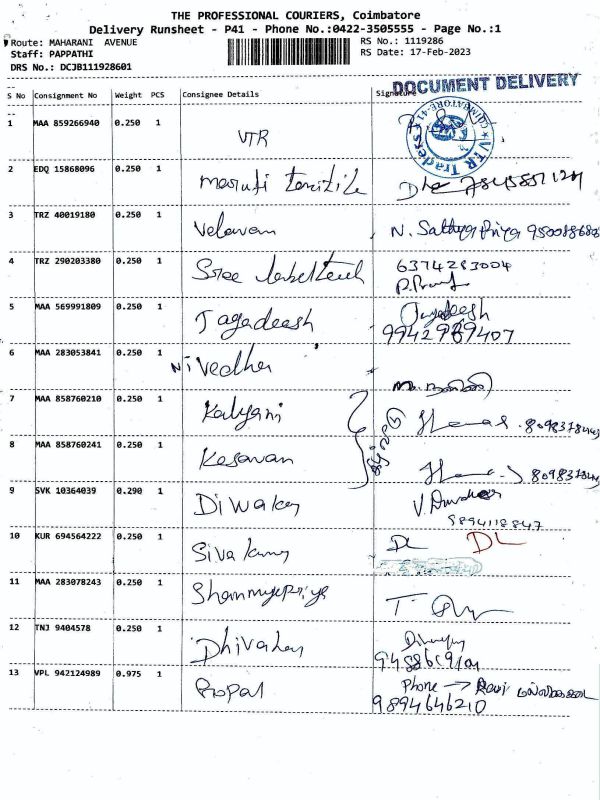 THE PROFESSIONAL COURIERS, Coimbatore
Delivery Runsheet - P41 - Phone No.:0422-3505555 - Page No.:1
Route: MAHARANI AVENUE
RS No.: 1119286
Staff: PAPPATHI
RS Date: 17-Feb-2023
DRS No.: DCJB111928601
DOCUMENT DELIVERY
S No Consignment No Weight PCS Consignee Details Signature
1 MAA 859266940 0.250 1 VTR
VTR Traders COIMBATORE-41
2 EDQ 15868096 0.250 1 maruti
3 TRZ 40019180 0.250 1 Velavan N. Sathya Priya
4 TRZ 290203380 0.250 1 Sree 6374283004
5 MAA 569991809 0.250 1 Jagadeesh Jagadeesh
9942989407
6 MAA 283053841 0.250 1 Nivedha
7 MAA 858760210 0.250 1 Kalyani
8 MAA 858760241 0.250 1 Kesavan
9 SVK 10364039 0.290 1 Diwakar
9894118847
10 KUR 694564222 0.250 1 Siva DL DL
11 MAA 283078243 0.250 1 Shanmugapriya
12 TNJ 9404578 0.250 1 Dhivakar
13 VPL 942124989 0.975 1 Gopal Phone → Ravi
9894646210